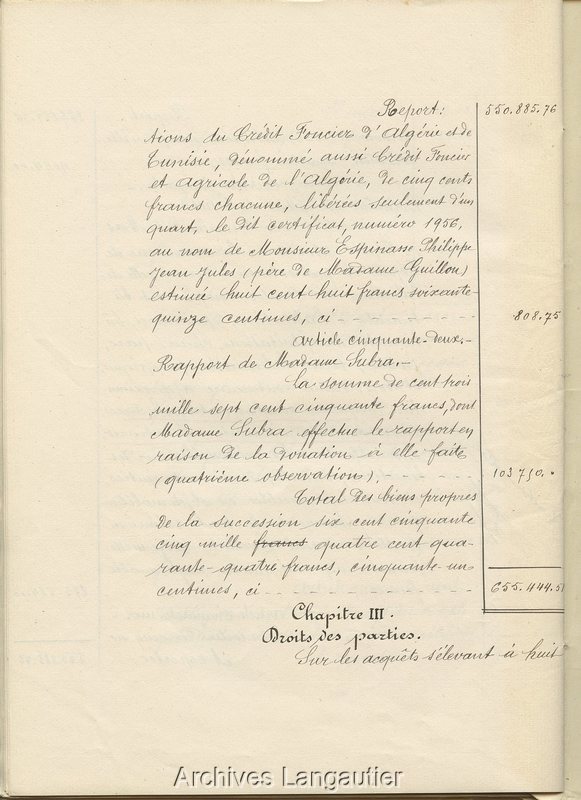 Report: 550.885.76
tions du Crédit Foncier d'Algérie et de
Tunisie, dénommé aussi Crédit Foncier
et Agricole de l'Algérie, de cinq cents
francs chacune, libérées seulement d'un
quart, le dit certificat, numéro 1956,
au nom de Monsieur Espinasse Philippe
Jean Jules (père de Madame Guillon)
estimée huit cent huit francs soixante-
quinze centimes, ci - - - - - - - - - 808.75
Article cinquante-deux.-
Rapport de Madame Subra.-
La somme de cent trois
mille sept cent cinquante francs, dont
Madame Subra effectue le rapport en
raison de la donation à elle faite
(quatrième observation). 103750.
Total des biens propres
de la succession six cent cinquante
cinq mille francs quatre cent qua-
rante-quatre francs, cinquante-un
centimes, ci - - - - - - - - - - - - 655.444.51
Chapitre III.
Droits des parties.
Sur les acquêts s'élevant à huit
Archives Langautier